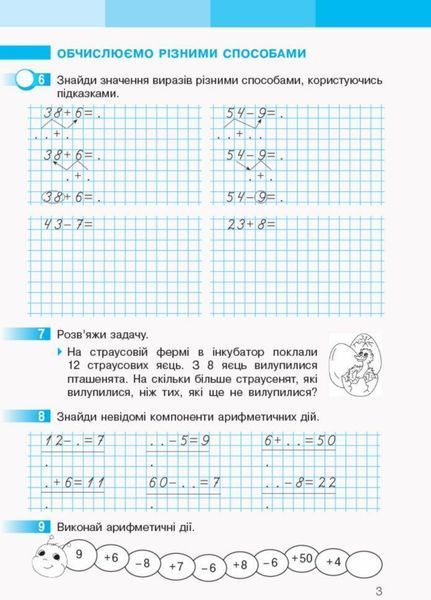 ОБЧИСЛЮЄМО РІЗНИМИ СПОСОБАМИ
6 Знайди значення виразів різними способами, користуючись
підказками.
38+6=. 54-9=.
..+.
38+6=. 54-9=.
.+. .+.
38+6=. 54-9=.
43-7= 23+8=
7 Розв'яжи задачу.
На страусовій фермі в інкубатор поклали
12 страусових яєць. З 8 яєць вилупилися
пташенята. На скільки більше страусенят, які
вилупилися, ніж тих, які ще не вилупилися?
8 Знайди невідомі компоненти арифметичних дій.
12-.=7 ..-5=9 6+..=50
.+6=11 60-..=7 ..-8=22
9 Виконай арифметичні дії.
9 +6 -8 +7 -6 +8 -6 +50 +4
3